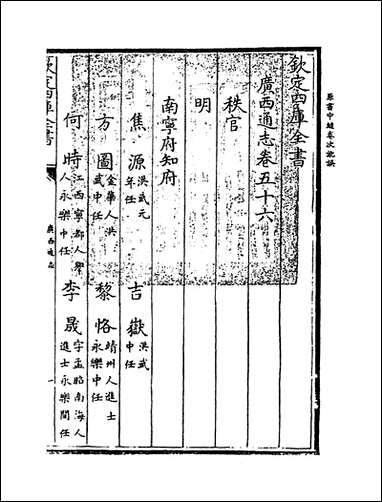 原書中縫卷次訛誤
欽定四庫全書
廣西通志卷五十六
秩官
明
南寧府知府
焦源 洪武元年任 吉嶽 洪武中任
方圖 金華人洪武中任 黎恪 靖州人進士永樂中任
何時 江西寧都人舉人永樂中任 李晟 字孟昭南海人進士永樂間任
欽定四庫全書
廣西通志
一